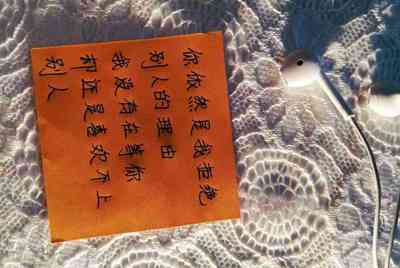 你依然是我拒绝
别人的理由
我没有在等你
却还是喜欢不上
别人